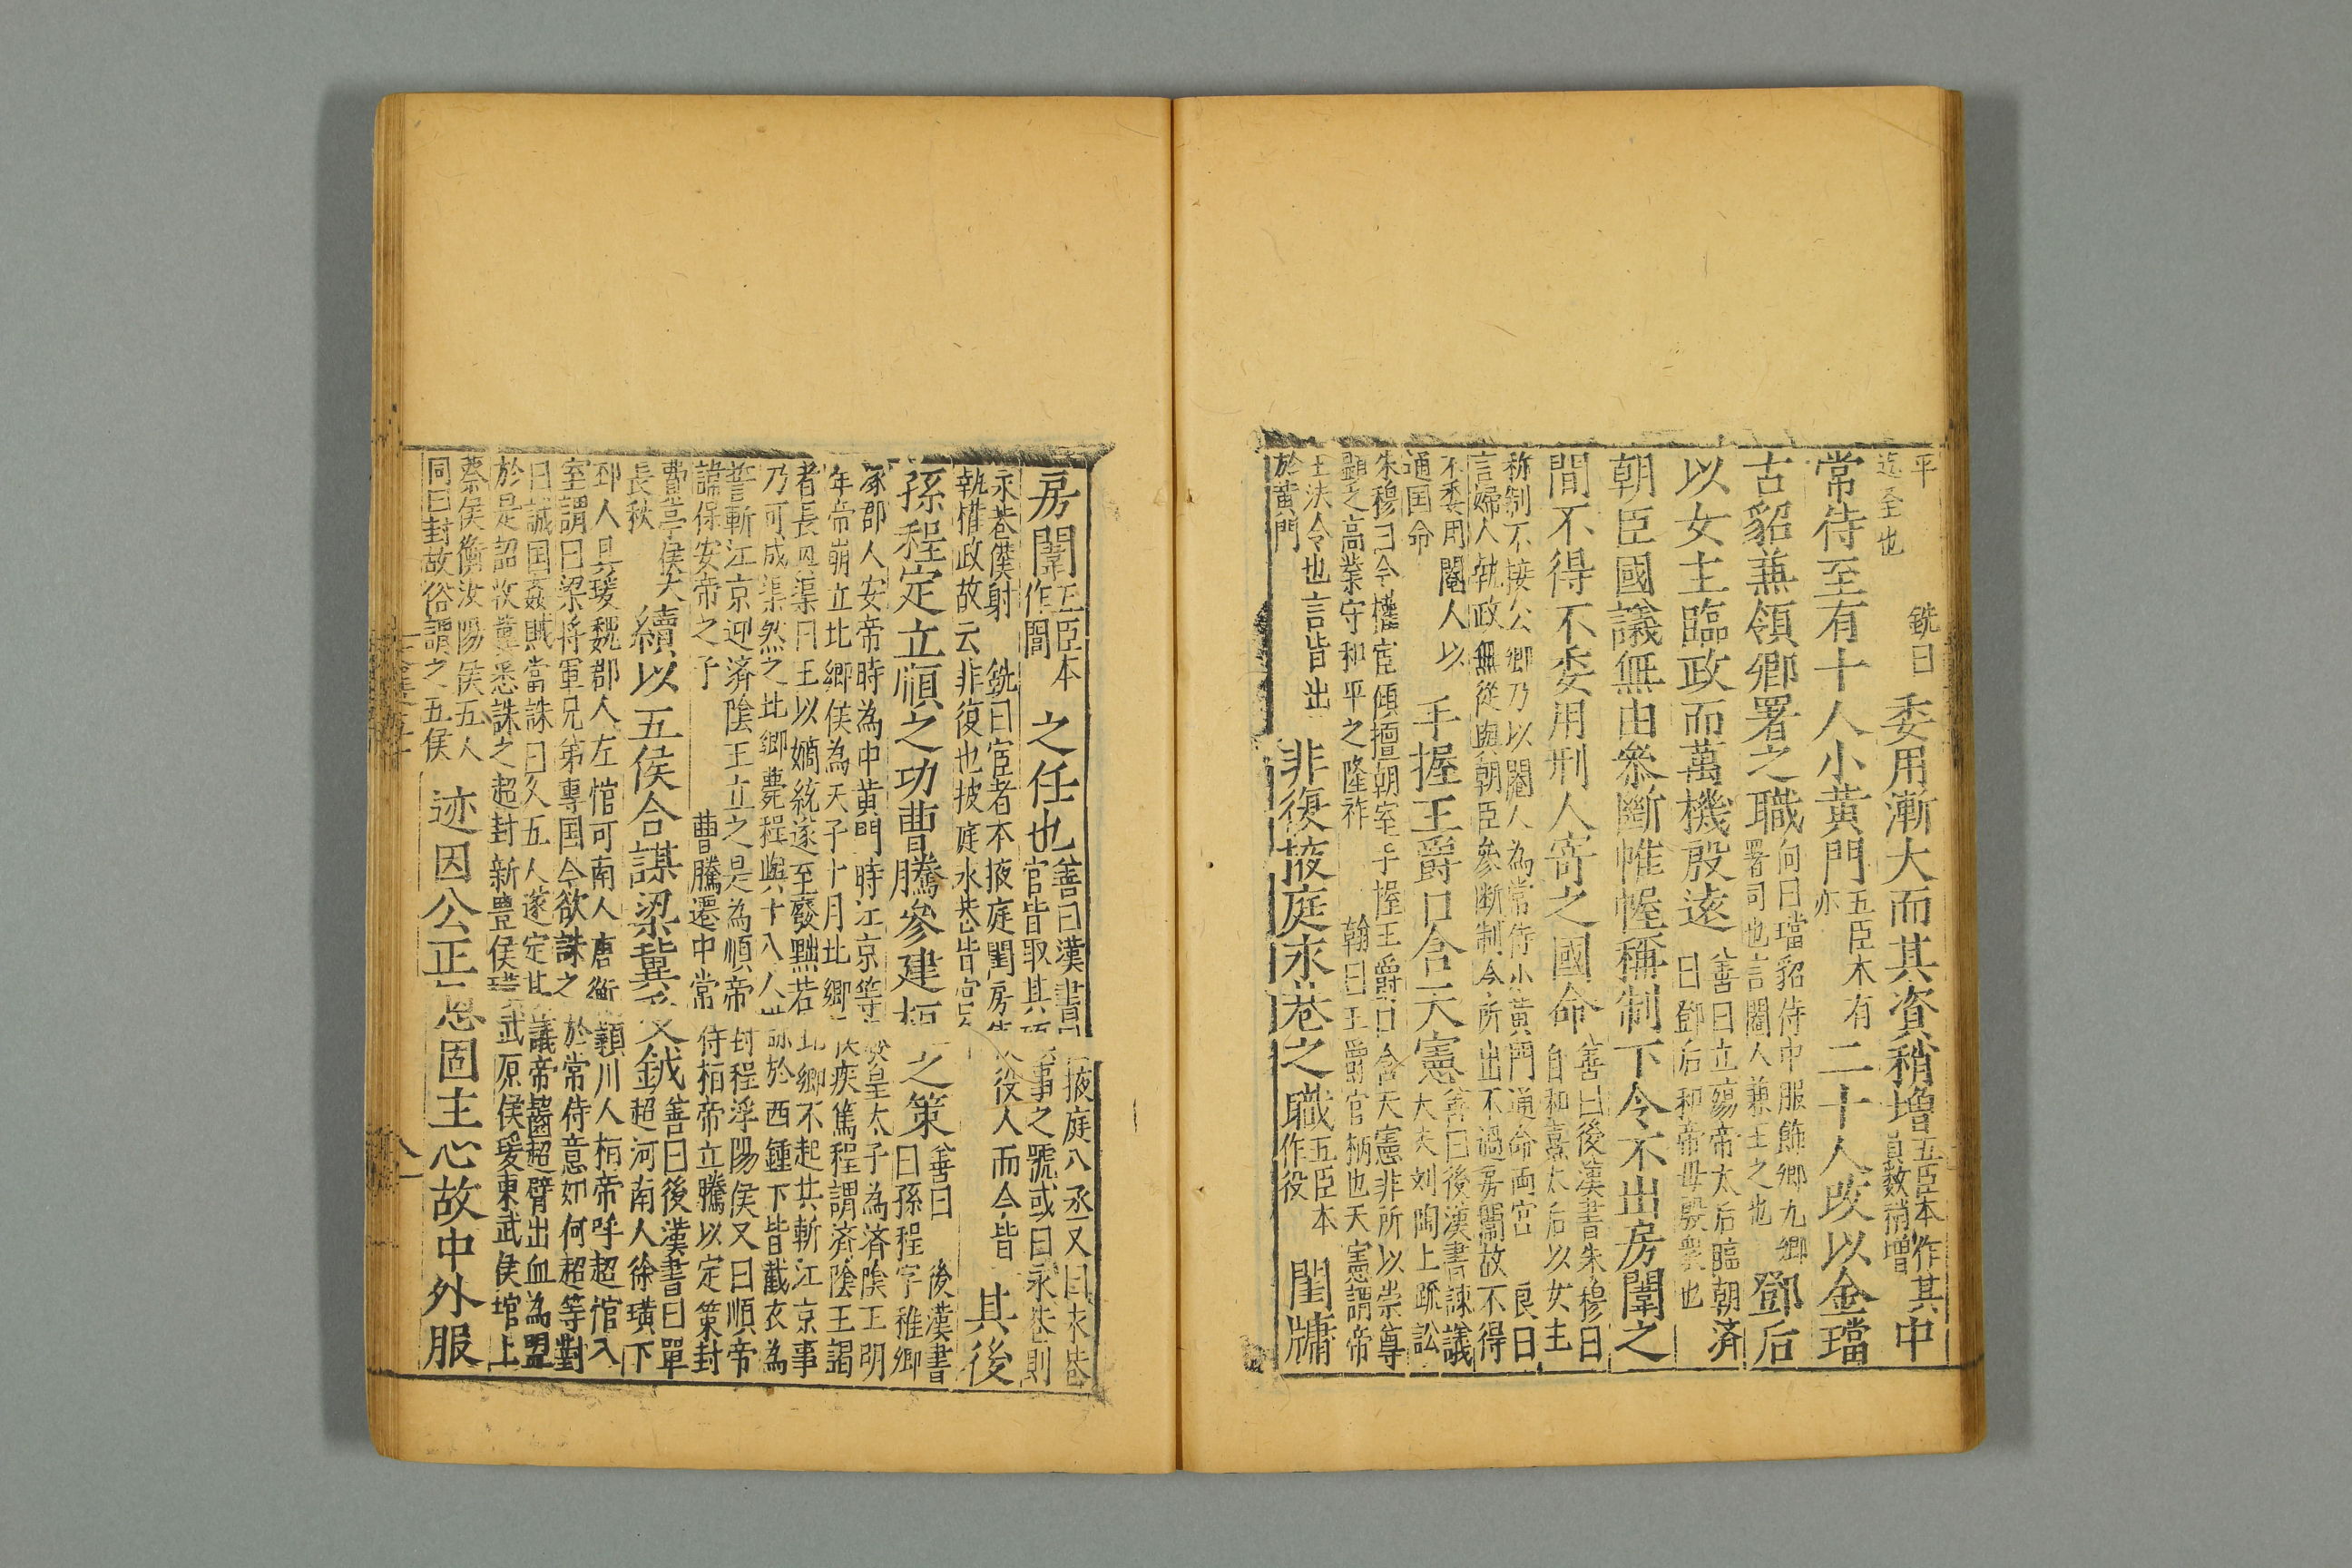 平
遠全也
銑曰
委用漸大而其資稍增
五臣本作其中
員数稍增
常侍至有十人小黃門
五臣本有
亦
二十人改以金璫
古貂兼領卿署之職
向曰璫貂侍中服飾卿九卿
署司也言閹人兼主之也
鄧后
以女主臨政而萬機殷遠
善曰立殤帝太后臨朝済
曰鄧后和帝母殷衆也
朝臣國議無由叅斷帷幄稱制下令不出房闈之
間不得不委用刑人寄之國命
善曰後漢書朱穆曰
自和熹太后以女主
称制不接公卿乃以閹人為常侍小黃門通命両宮
良曰
言婦人執政無從與朝臣參断制令所出不過房闈故不得
不委用閹人以
通国命
手握王爵口含天憲
善曰後漢書諫議
大夫刘陶上疏訟
朱穆曰今權宦傾擅朝室手握王爵口含天憲非所以崇尊
顯之高業守和平之隆祚
翰曰王爵官柄也天憲謂帝
王法令也言皆出
於黃門
非復掖庭永巷之職
五臣本
作役
閨牗
房闈
五臣本
作闈
之任也
善曰漢書
掖庭八丞又曰永巷
官皆取其
事之號或曰永巷則
永巷僕射
銑曰宦者本掖庭閨房
役人而今皆
執權政故云非復也披庭永巷皆宮
其後
孫程定立順之功曹騰參建桓之策
善曰
後漢書
曰孫程字稚卿
涿郡人安帝時為中黃門時江京等
皇太子為済陰王明
年帝崩立北鄉侯為天子十月北鄉
疾篤程謂済陰王謁
者長興渠曰王以嫡統遂至廢黜若北鄉不起共斬江京事
乃可成渠然之北鄉薨程與十八人
於西鍾下皆截衣為
誓斬江京迎済陰王立之是為順帝封程浮陽侯又曰順帝
諱保安帝之子
曹騰遷中常侍桓帝立騰以定策封
費亭侯大
長秋
續以五侯合謀梁冀受鉞
善曰後漢書曰單
超河南人徐璜下
邳人具瑗魏郡人左悺可南人唐衡潁川人桓帝呼超悺入
室謂曰梁将軍兄弟專国今欲誅之於常侍意如何超等對
曰誠国姦賊當誅曰久五人遂定其議帝齧超臂出血為盟
於是詔收蓳悉誅之超封新豊侯璜武原侯瑗東武侯悺上
蔡侯衡汝陽侯五人
同曰封故俗謂之五侯
迹因公正恩固主心故中外服